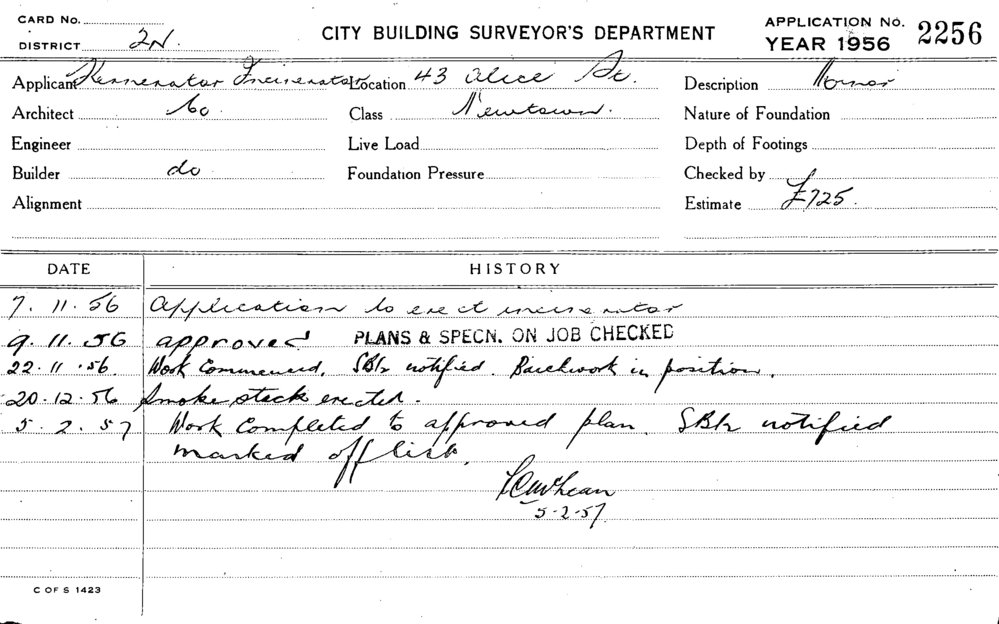 CARD No.
DISTRICT 2N.
CITY BUILDING SURVEYOR'S DEPARTMENT
APPLICATION No. 2256
YEAR 1956
Applicant Kernerator Incinerator Location 43 Alice St. Description Minor
Architect Co Class Newtown. Nature of Foundation
Engineer Live Load Depth of Footings
Builder do Foundation Pressure Checked by
Alignment Estimate £725.
DATE HISTORY
7. 11. 56 Application to erect incinerator
9. 11. 56 approved PLANS & SPECN. ON JOB CHECKED
22. 11. 56. Work Commenced. notified. Brickwork in position.
20. 12. 56 Smoke stack erected.
5. 2. 57 Work Completed to approved plan. notified
marked off list.
5-2-57
C OF S 1423